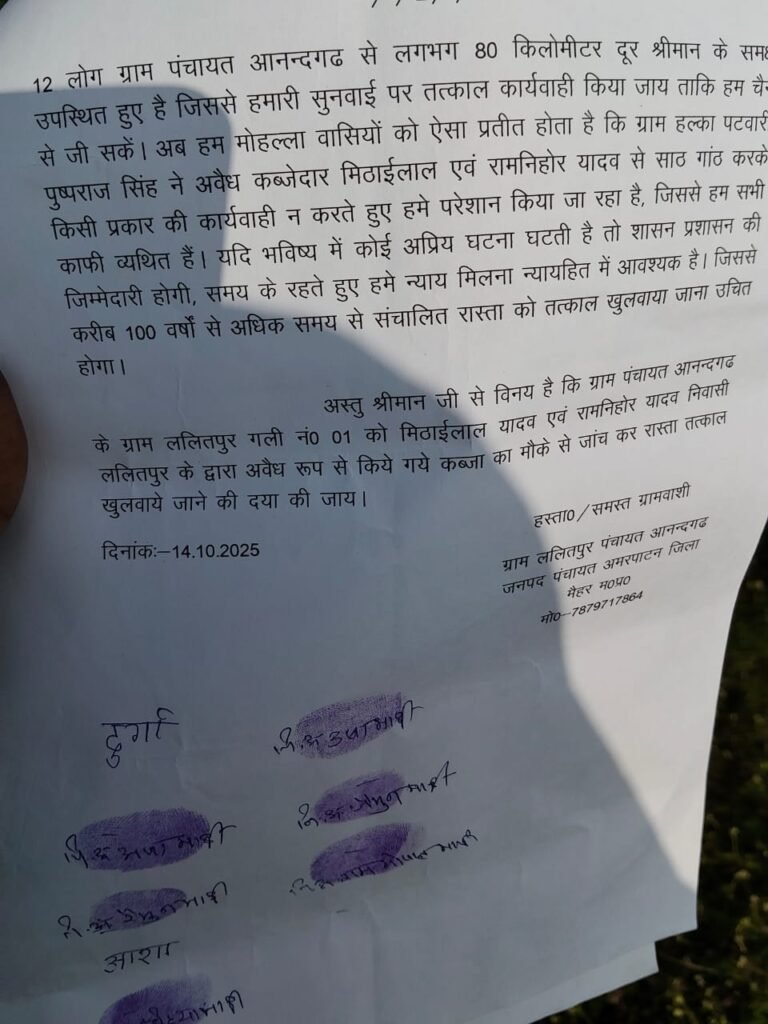 12 लोग ग्राम पंचायत आनन्दगढ से लगभग 80 किलोमीटर दूर श्रीमान के समक्ष
उपस्थित हुए है जिससे हमारी सुनवाई पर तत्काल कार्यवाही किया जाय ताकि हम चैन
से जी सकें। अब हम मोहल्ला वासियों को ऐसा प्रतीत होता है कि ग्राम हल्का पटवारी
पुष्पराज सिंह ने अवैध कब्जेदार मिठाईलाल एवं रामनिहोर यादव से साठ गांठ करके
किसी प्रकार की कार्यवाही न करते हुए हमे परेशान किया जा रहा है, जिससे हम सभी
काफी व्यथित हैं। यदि भविष्य में कोई अप्रिय घटना घटती है तो शासन प्रशासन की
जिम्मेदारी होगी, समय के रहते हुए हमे न्याय मिलना न्यायहित में आवश्यक है। जिससे
करीब 100 वर्षो से अधिक समय से संचालित रास्ता को तत्काल खुलवाया जाना उचित
होगा।
अस्तु श्रीमान जी से विनय है कि ग्राम पंचायत आनन्दगढ
के ग्राम ललितपुर गली नं0 01 को मिठाईलाल यादव एवं रामनिहोर यादव निवासी
ललितपुर के द्वारा अवैध रूप से किये गये कब्जा का मौके से जांच कर रास्ता तत्काल
खुलवाये जाने की दया की जाय।
हस्ता0/समस्त ग्रामवाशी
दिनांकः–14.10.2025
ग्राम ललितपुर पंचायत आनन्दगढ
जनपद पंचायत अमरपाटन जिला
मैहर म0प्र0
मो0–7879717864
दुर्गा
आशा